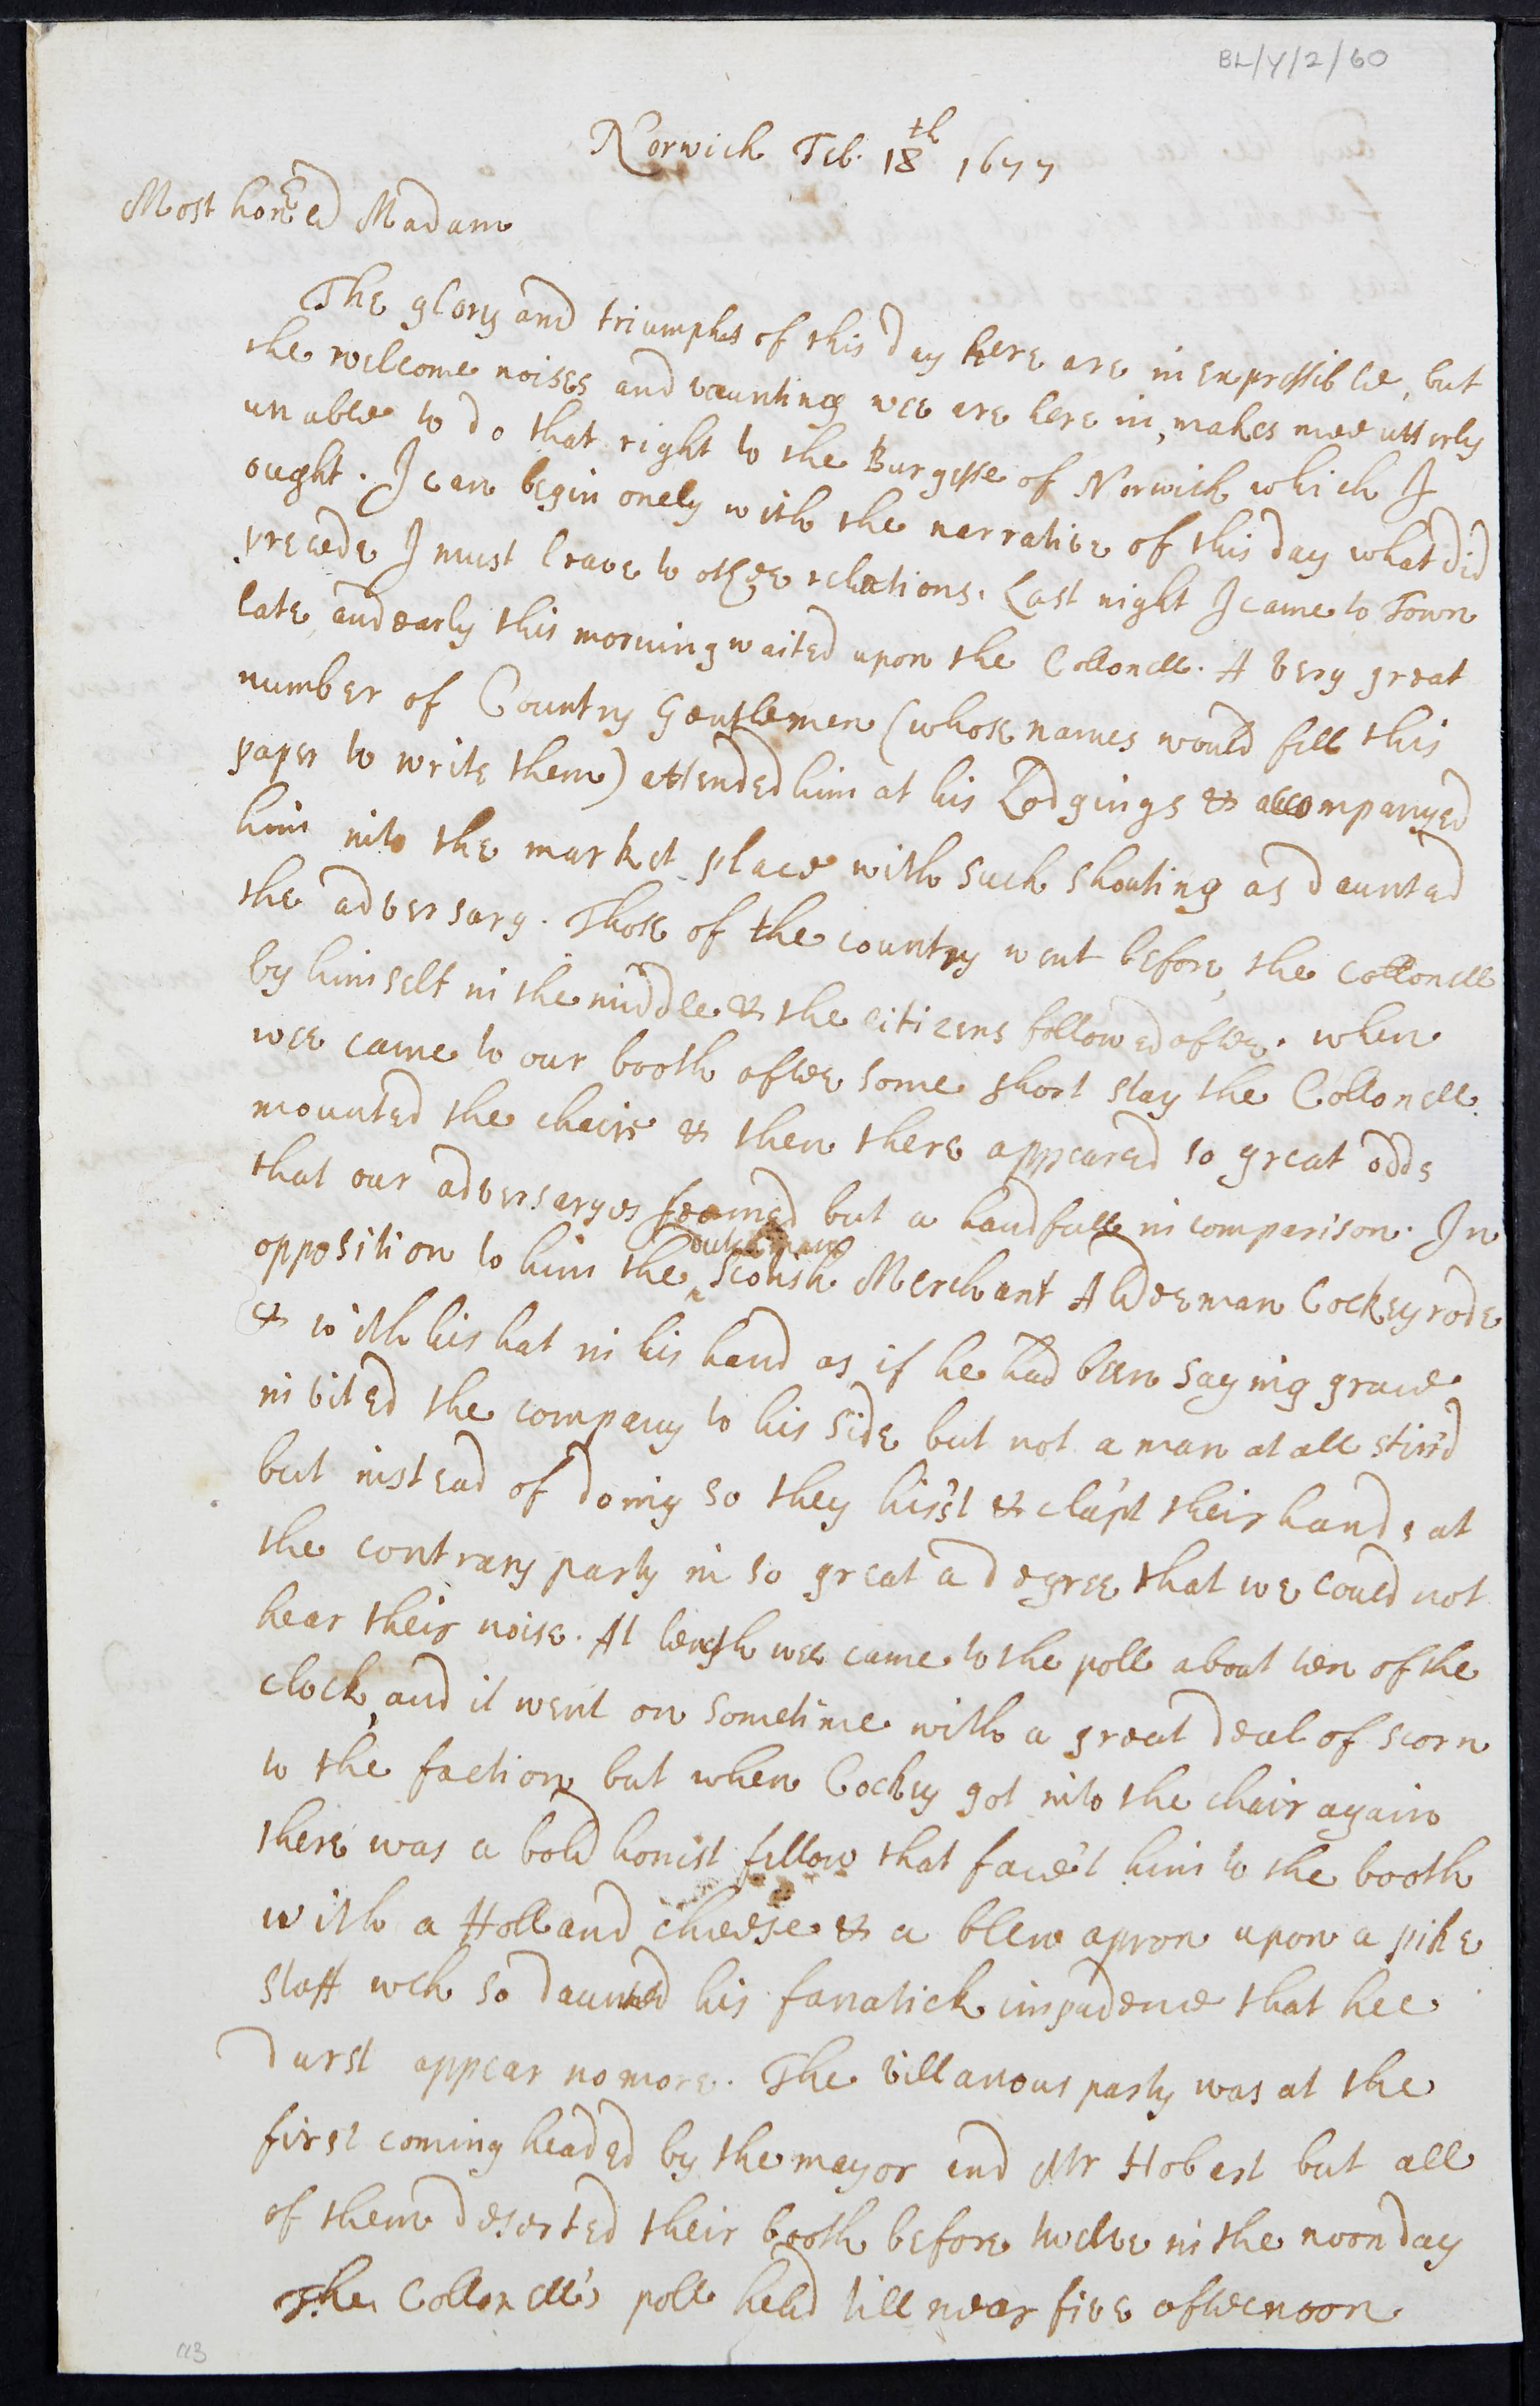 BL/Y/2/60
Norwich Feb. 18th 1677
Most honred Madam
The glory and triumphs of this day here are inexpressible, but
the welcome noises and vaunting wee are here in, makes mee utterly
unable to do that right to the Burgesse of Norwich which I
ought. I can begin onely with the narrative of this day what did
precede I must leave to other relations. Last night I came to Town
late, and early this morning waited upon the Collonell. A very great
number of Country Gentlemen (whose names would fill this
paper to write them) attended him at his Lodgings & accompanyed
him into the market place with such shouting as daunted
the adversary. Those of the country went before, the Collonell
by himself in the middle & the citizens followed after. when
wee came to our booth after some short stay the Collonell
mounted the chaire & then there appeared so great odds
that our adversaryes seemed but a handfull in comparison. In
opposition to him the Scotish Merchant Alderman Cockey rode
& with his hat in his hand as if he had been saying grace
invited the company to his side but not a man at all stirr'd
but instead of doing so they his'st & clap't their hands at
the contrary party in so great a degree that we could not
hear their noise. At length wee came to the poll about ten of the
clock, and it went on sometime with a great deal of scorn
to the faction but when Cockey got into the chair again
there was a bold honest fellow that face't him to the booth
with a Holland cheese & a blew apron upon a pike
staff wch so daunted his fanatick impudence that hee
durst appear no more. The villanous party was at the
first coming headed by the mayor and Mr Hobart but all
of them deserted their booth before twelve in the noon day
The Collonell's poll held till near five afternoon